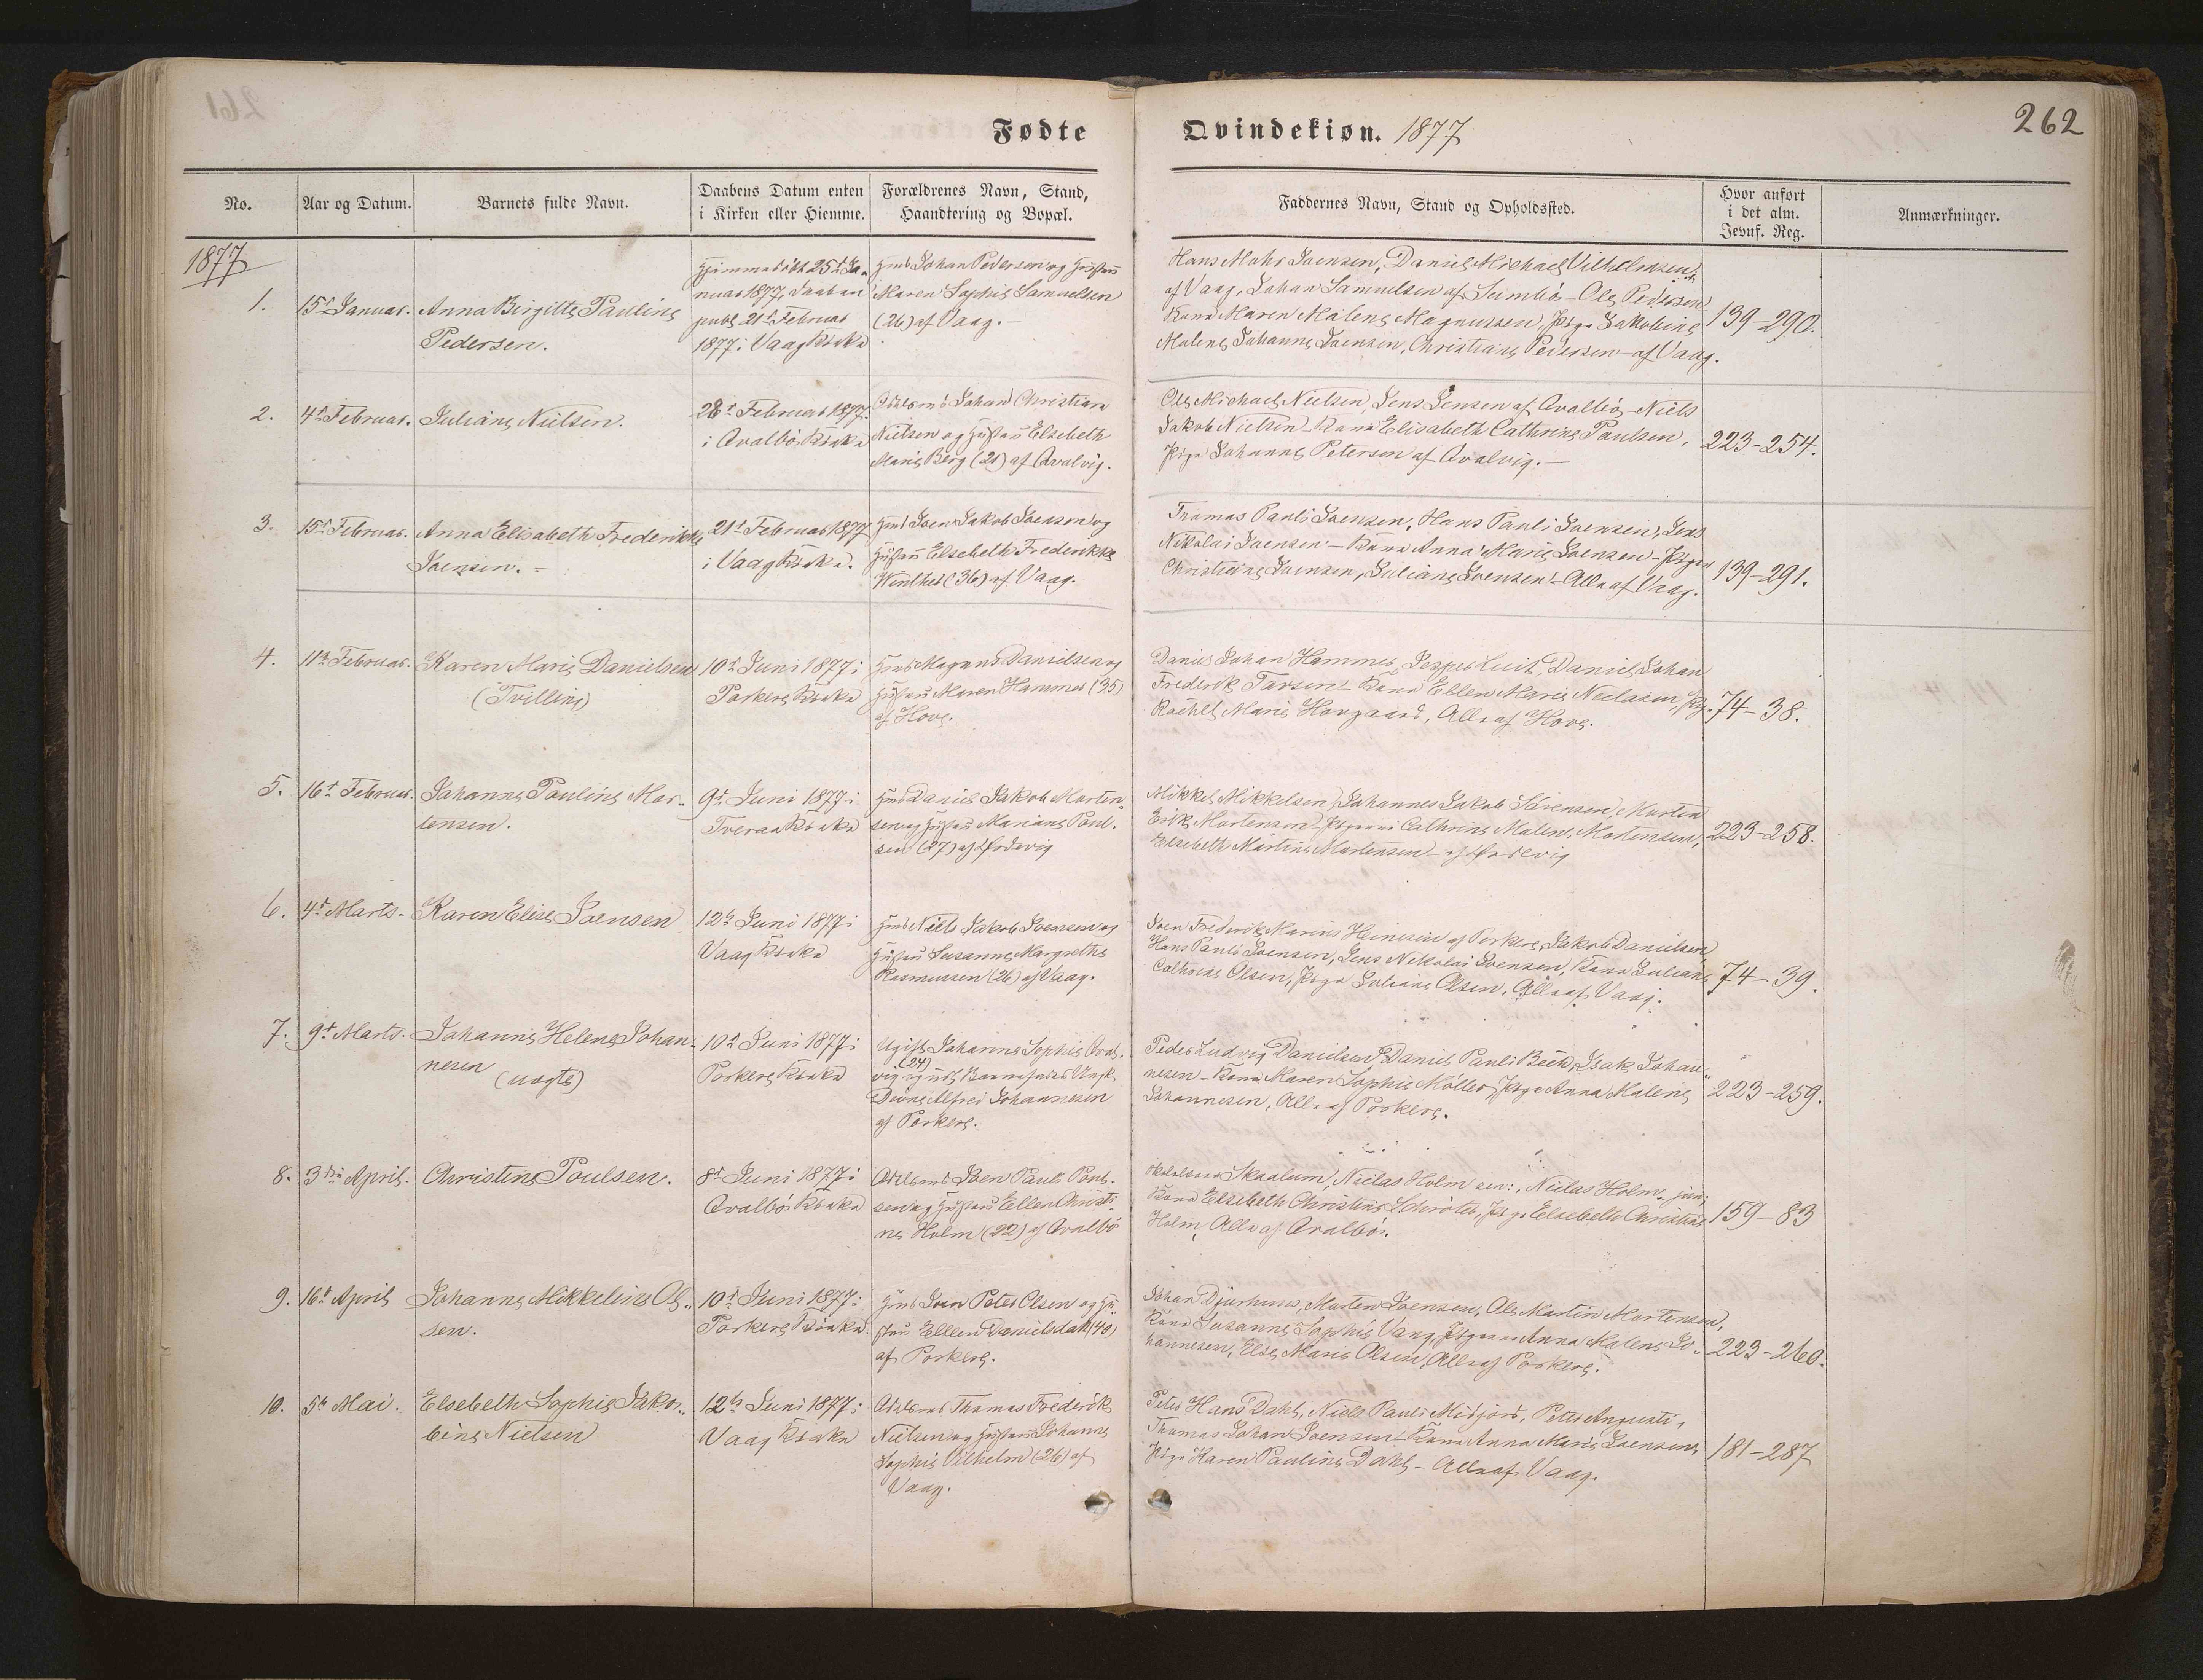 Fødte
Qvindekiøn. 1877
262
No.
Aar og Datum.
Barnets fulde Navn.
Daabens Datum enten
i Kirken eller Hiemme.
Forældrenes Navn, Stand,
Haandtering og Bopæl.
Faddernes Navn, Stand og Opholdssted.
Hvor anført
i det alm.
Jevnf. Reg.
Anmærkninger.
1877
1.
15d Januar.
Anna Birgitte Pauline
Pedersen.
Hjemmedöbt 25d Ja-
nuar 1877, Daaben
publ 21d Februar
1877 i Vaag Kirke
Gmd Johan Pedersen og Hustru
Maren Sophie Samuelsen
(26) af Vaag.-
Hans Mohr Joensen, Daniel Michael Vilhelmsen
af Vaag, Johan Samuelsen af Sumbö - Ole Pedersen
Kone Maren Malene Magnussen, Pige Jakobine
Malene Johanne Joensen, Christiane Pedersen - af Vaag.
139-290.
2.
4d Februar.
Juliane Nielsen.
28d Februar 1877.
i Qvalbö Kirke
Johan Christian
Nielsen og Hustru Elsebeth
Marie Berg (21) af Qvalvig.
Ole Michael Nielsen, Jens Jensen af Qvalbö - Niels
Jakob Nielsen - Kone Elisabeth Cathrine Paulsen,
Pige Johanne Petersen af Qvalvig.-
223-254.
3.
15d Februar.
Anna Elisabeth Frederikke
Joensen.-
21d Februar 1877
i Vaag Kirke.
Gmd Joen Jakob Joensen og
Hustru Elsebeth Frederikke
Winther (36) af Vaag.
Tromas Pauli Joensen, Hans Pauli Joensen, Jens
Nikolai Joensen - Kone Anna Marie Joensen - Pigen
Christine Joensen, Juliane Joensen - Alle af Vaag.
139-291.
4.
11te Februar.
Karen Marie Danielsen
(Tvilling)
10d Juni 1877 i
Porkere Kirke
Gmd Magnus Danielsen og
Hustru Maren Hammer (35)
af Hove.
Daniel Johan Hammer, Jesper Luis, Daniel Johan
Frederik Tarsen - Kone Ellen Marie Niclasen, Pige
Rachel Marie Hovgaard, Alle af Hove.
74-38.
5.
16d Februar.
Johanne Pauline Mor-
tensen.
9d Juni 1877 i
Tveraa Kirke
Gmd Daniel Jakob Morten-
sen og Hustru Mariane Poul-
sen (27) af Ördevig
Mikkel Mikkelsen, Johannes Jakob Sörensen, Morten
Erik Mortensen - Pigerne Cathrine Malene Mortensen,
Elsebeth Martine Mortensen - af Ördevig
223-258.
6.
4d Marts.
Karen Elise Joensen
12te Juni 1877 i
Vaag Kirke
Gmd Niels Jakob Joensen og
Hustru Susanne Margrethe
Rasmussen (26) af Vaag.
Joen Frederik Marius Heinesen af Porkere, Jakob Danielsen
Hans Pauli Joensen, Jens Nikolai Joensen, Kone Juliane
Cathrine Olsen, Pige Juliane Olsen, Alle af Vaag.
74-39.
7.
9d Marts.
Johanne Helene Johan-
nesen
(uægte)
10d Juni 1877 i
Porkere Kirke
Ugift Johanne Sophie Qval-
vig (24) og udl Barnefader Ungk
Alfred Johannesen
af Porkere.
Peder Ludvig Danielsen, Daniel Pauli Beck, Isak Johan-
nesen - Kone Maren Sophie Möller, Pige Anna Malene
Johannesen, Alle af Porkere.
223-259.
8.
3die April.
Christine Poulsen.
8d Juni 1877 i
Qvalbö Kirke
Joen Pauli Poul-
sen og Hustru Ellen Christi-
ne Holm (22) af Qvalbö
Skaalum, Niclas Holm sen:, Niclas Holm, jun:
Kone Elsebeth Christine Schröter, Pige Elsebeth Christine
Holm, Alle af Qvalbö.
159-83
9.
16d April
Johanne Mikkeline Ol-
sen.
10d Juni 1877 i
Porkere Kirke
Gmd Joen Peter Olsen og Hu-
stru Ellen Danielsdatt (40)
af Porkere.
Johan Djurhuus, Morten Joensen, Ole Martin Mortensen,
Kone Susanne Sophie Vang, Pigerne Anna Malene Jo-
hannesen, Else Marie Olsen, Alle af Porkere.
223-260.
10.
5te Mai.
Elsebeth Sophie Jako-
bine Nielsen
12te Juni 1877 i
Vaag Kirke
Thomas Frederik
Nielsen og Hustru Johanne
Sophie Vilhelm (26) af
Vaag.
Peter Hans Dahl, Niels Pauli Midjord, Peter Augusti,
Thomas Johan Joensen - Kone Anna Marie Joensen,
Pige Karen Pauline Dahl - Alle af Vaag.
181-287